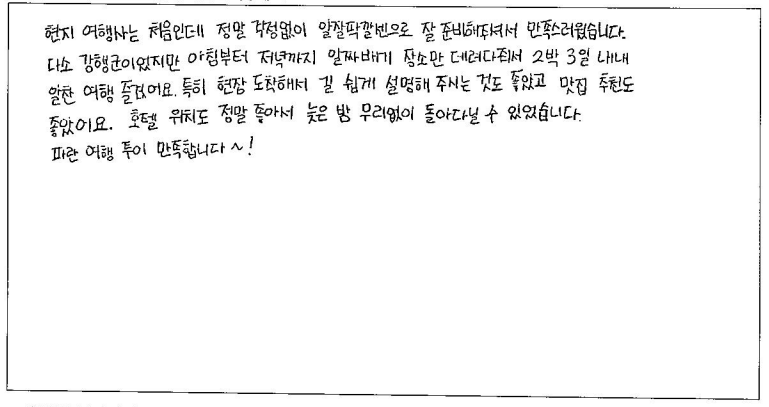 현지 여행사는 처음인데 정말 걱정없이 알잘딱깔센으로 잘 준비해주셔서 만족스러웠습니다.
다소 강행군이었지만 아침부터 저녁까지 알짜배기 장소만 데려다줘서 2박 3일 내내
알찬 여행 즐겼어요. 특히 현장 도착해서 길 쉽게 설명해 주시는 것도 좋았고 맛집 추천도
좋았어요. 호텔 위치도 정말 좋아서 늦은 밤 무리없이 돌아다닐 수 있었습니다.
파란 여행 투어 만족합니다~!